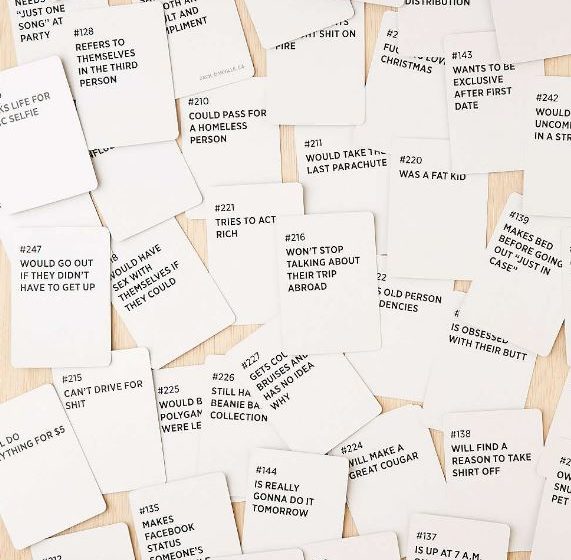 "JUST ONE
SONG" AT
PARTY
#128
REFERS TO
THEMSELVES
IN THE THIRD
PERSON
BOTH AN
ULT AND
MPLIMENT
SHIT ON
FIRE
DISTRIBUTION
CHRISTMAS
#143
WANTS TO BE
EXCLUSIVE
AFTER FIRST
DATE
KS LIFE FOR
C SELFIE
#210
COULD PASS FOR
A HOMELESS
PERSON
#242
WOULD
UNCOM
IN A STR
#211
WOULD TAKE THE
LAST PARACHUTE
#220
WAS A FAT KID
#221
TRIES TO ACT
RICH
#216
WON'T STOP
TALKING ABOUT
THEIR TRIP
ABROAD
#139
MAKES BED
BEFORE GOING
OUT "JUST IN
CASE"
#247
WOULD GO OUT
IF THEY DIDN'T
HAVE TO GET UP
WOULD HAVE
SEX WITH
THEMSELVES IF
THEY COULD
S OLD PERSON
DENCIES
IS OBSESSED
WITH THEIR BUTT
#215
CAN'T DRIVE FOR
SHIT
#225
WOULD B
POLYGAM
WERE LE
#226
STILL HA
BEANIE BA
COLLECTION
#227
GETS COO
BRUISES AND
HAS NO IDEA
WHY
L DO
YTHING FOR $5
#224
WILL MAKE A
GREAT COUGAR
#138
WILL FIND A
REASON TO TAKE
SHIRT OFF
#144
IS REALLY
GONNA DO IT
TOMORROW
#135
MAKES
FACEBOOK
STATUS
SOMEONE'S
#137
IS UP AT 7 A.M.
OW
SNU
PET
#212